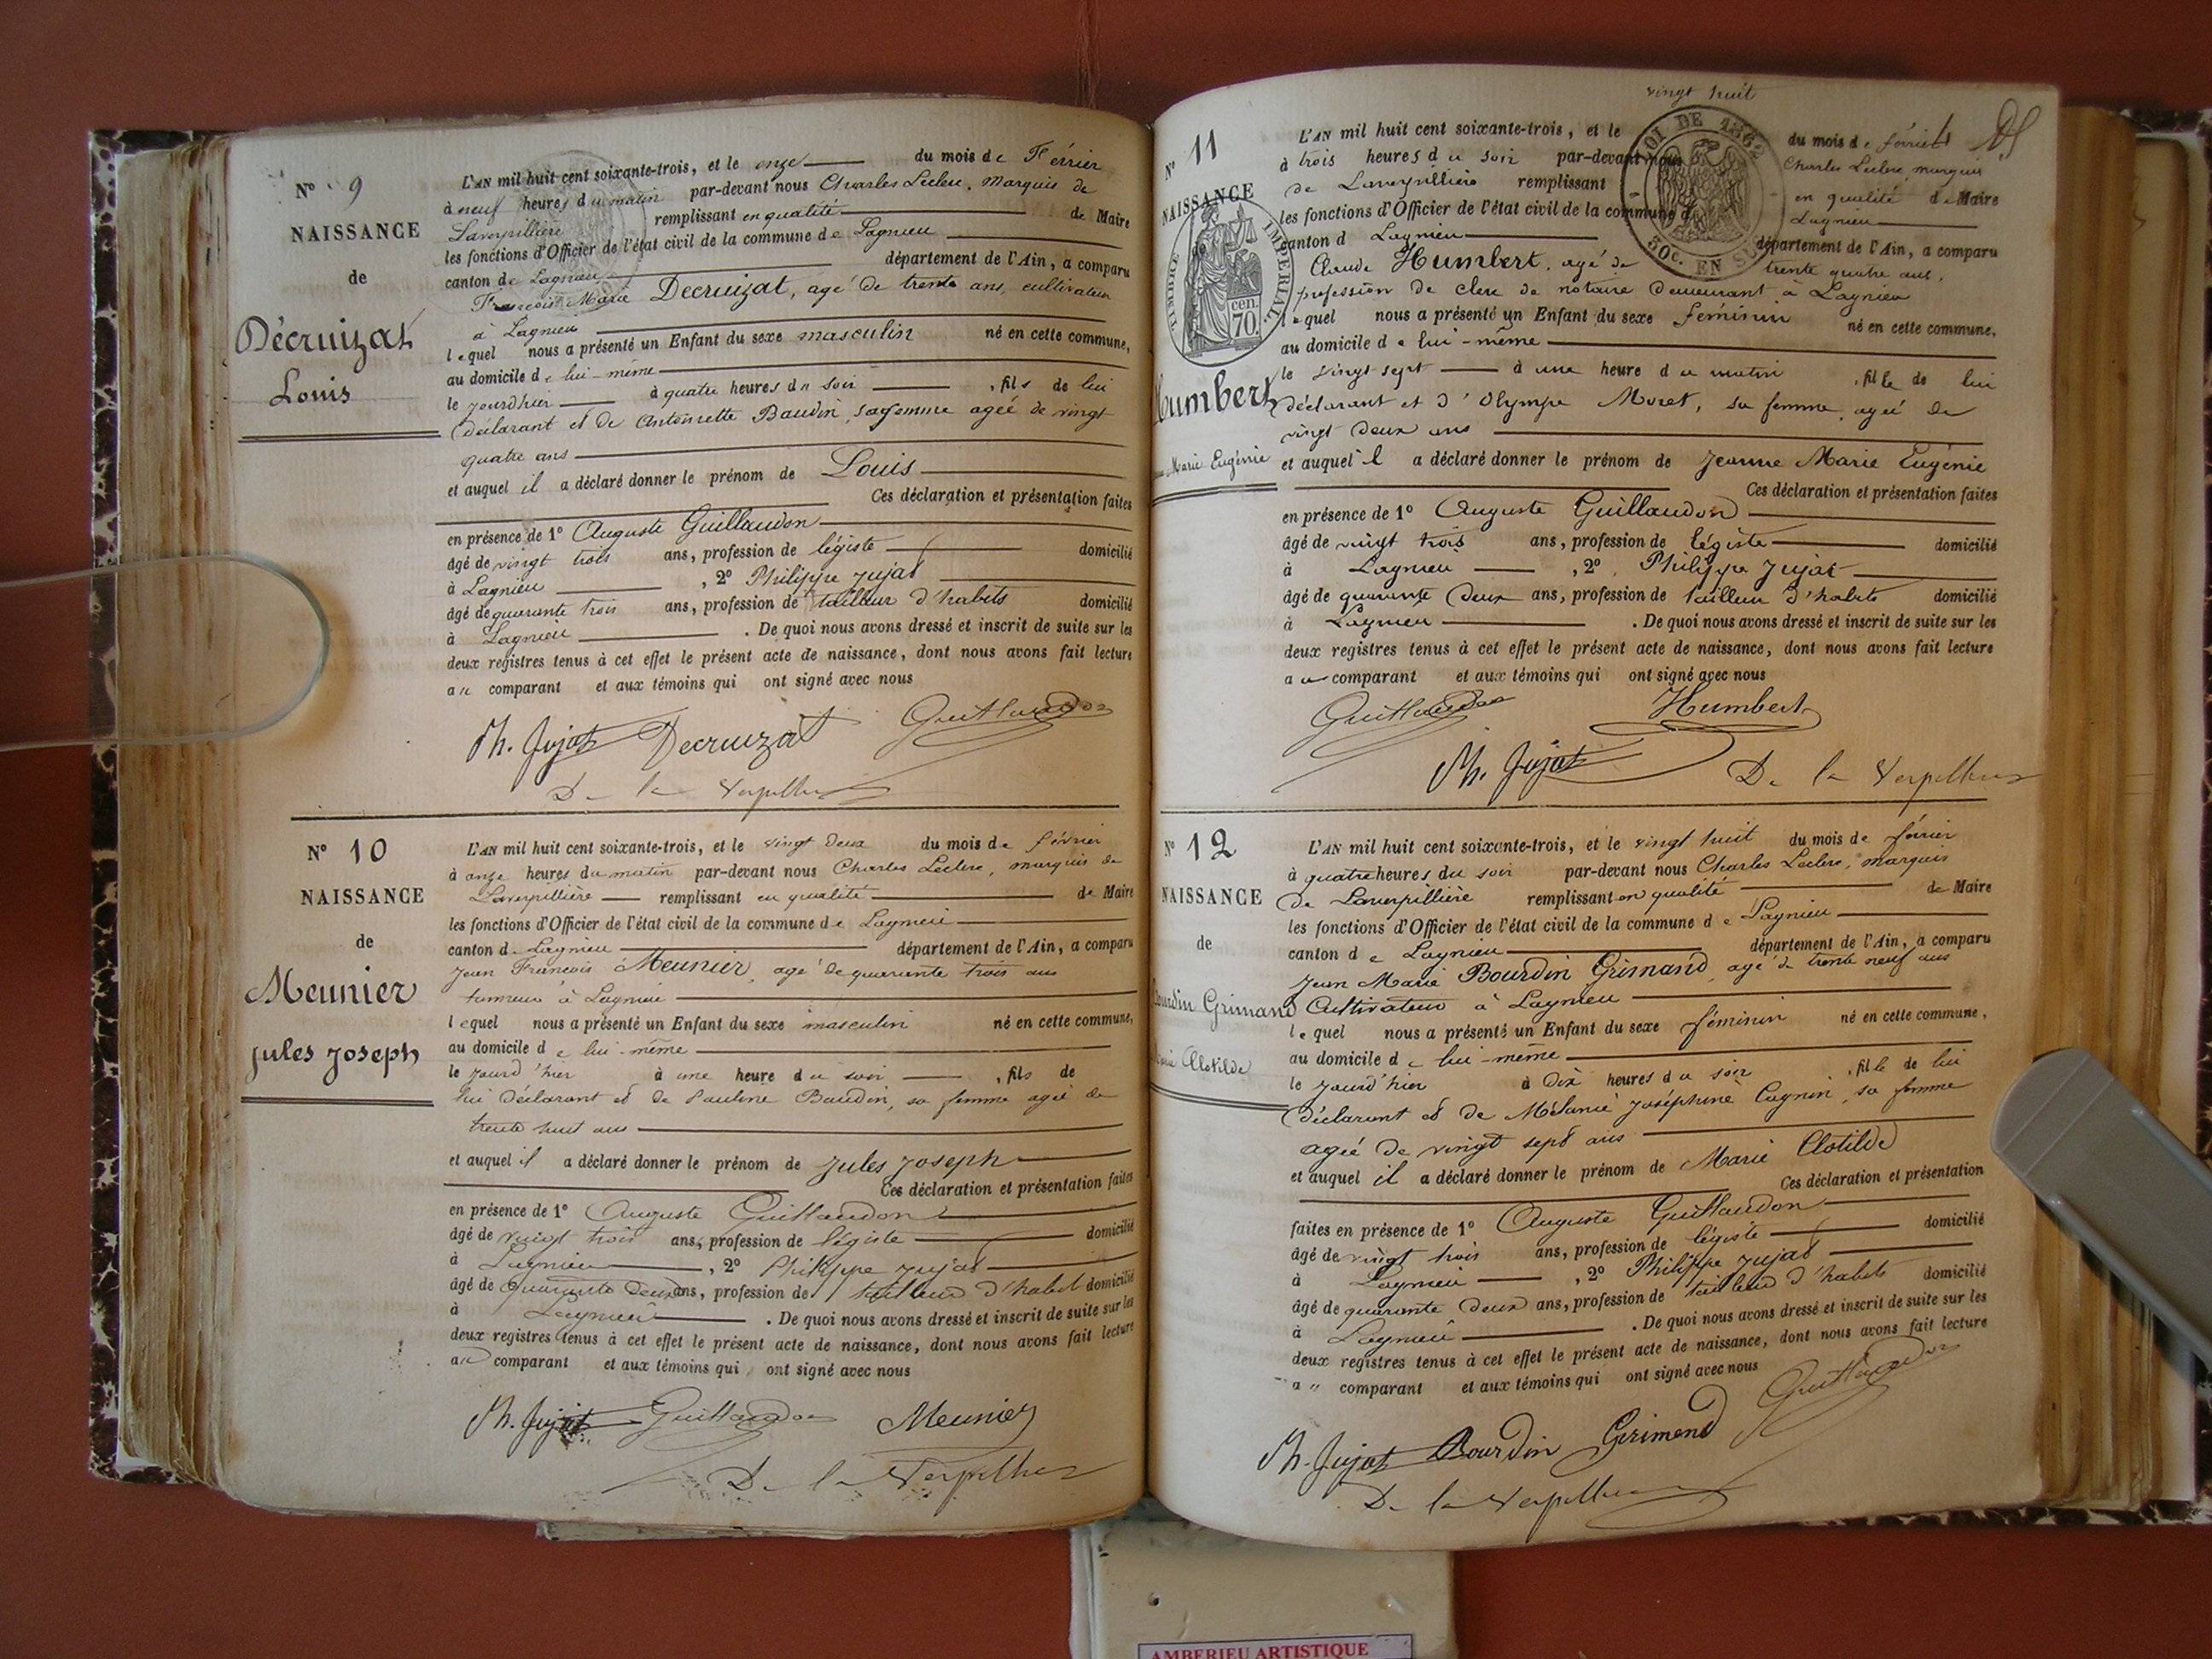 N° 9
NAISSANCE
de
Décruizat
Louis
L'AN mil huit cent soixante-trois, et le onze du mois de Février
à neuf heures du matin par-devant nous Charles Leclerc, marquis de
Laverpillière remplissant en qualité de Maire
les fonctions d'Officier de l'état civil de la commune de Lagnieu
canton de Lagnieu département de l'Ain, a comparu
François Marie Decruizat, agé de trente ans, cultivateur
à Lagnieu
lequel nous a présenté un Enfant du sexe masculin né en cette commune,
au domicile de lui-même
le jourdhier à quatre heures du soir, fils de lui
déclarant et de Antoinette Baudin, sa femme agée de vingt
quatre ans
et auquel il a déclaré donner le prénom de Louis
Ces déclaration et présentation faites
en présence de 1° Auguste Guillaudon
âgé de vingt trois ans, profession de légiste domicilié
à Lagnieu, 2° Philippe Jujat
âgé de quarante trois ans, profession de tailleur d'habits domicilié
à Lagnieu. De quoi nous avons dressé et inscrit de suite sur les
deux registres tenus à cet effet le présent acte de naissance, dont nous avons fait lecture
au comparant et aux témoins qui ont signé avec nous
Ph. Jujat Decruizat Guillaudon
De la Verpillière
N° 10
NAISSANCE
de
Meunier
Jules Joseph
L'AN mil huit cent soixante-trois, et le vingt deux du mois de février
à onze heures du matin par-devant nous Charles Leclerc, marquis de
Laverpillière remplissant en qualité de Maire
les fonctions d'Officier de l'état civil de la commune de Lagnieu
canton de Lagnieu département de l'Ain, a comparu
Jean François Meunier, agé de quarante trois ans
à Lagnieu
lequel nous a présenté un Enfant du sexe masculin né en cette commune,
au domicile de lui-même
le jourd'hier à une heure du soir, fils de
lui déclarant et de Pauline Baudin, sa femme agée de
trente huit ans
et auquel il a déclaré donner le prénom de Jules Joseph
Ces déclaration et présentation faites
en présence de 1° Auguste Guillaudon
âgé de vingt trois ans, profession de légiste domicilié
à Lagnieu, 2° Philippe Jujat
âgé de quarante deux ans, profession de tailleur d'habit domicilié
à Lagnieu. De quoi nous avons dressé et inscrit de suite sur les
deux registres tenus à cet effet le présent acte de naissance, dont nous avons fait lecture
au comparant et aux témoins qui ont signé avec nous
Ph. Jujat Guillaudon Meunier
De la Verpillière
vingt huit
N° 11
NAISSANCE
de
TIMBRE IMPERIAL
cen. 70.
LOI DE 1862
50c. EN SUS
Humbert
Marie Eugénie
L'AN mil huit cent soixante-trois, et le du mois de février
à trois heures du soir par-devant nous Charles Leclerc, marquis
de Laverpillière remplissant en qualité de Maire
les fonctions d'Officier de l'état civil de la commune d Lagnieu
canton d Lagnieu département de l'Ain, a comparu
Claude Humbert, agé de trente quatre ans,
profession de clerc de notaire demeurant à Lagnieu
lequel nous a présenté un Enfant du sexe féminin né en cette commune,
au domicile de lui-même
le vingt sept à une heure du matin, fille de lui
déclarant et d'Olympe Moret, sa femme agée de
vingt deux ans
et auquel il a déclaré donner le prénom de Jeanne Marie Eugénie
Ces déclaration et présentation faites
en présence de 1° Auguste Guillaudon
âgé de vingt trois ans, profession de légiste domicilié
à Lagnieu, 2° Philippe Jujat
âgé de quarante deux ans, profession de tailleur d'habits domicilié
à Lagnieu. De quoi nous avons dressé et inscrit de suite sur les
deux registres tenus à cet effet le présent acte de naissance, dont nous avons fait lecture
au comparant et aux témoins qui ont signé avec nous
Guillaudon Humbert
Ph. Jujat De la Verpillière
N° 12
NAISSANCE
de
Bourdin Grimand
Marie Clotilde
L'AN mil huit cent soixante-trois, et le vingt huit du mois de février
à quatre heures du soir par-devant nous Charles Leclerc, marquis
de Laverpillière remplissant en qualité de Maire
les fonctions d'Officier de l'état civil de la commune de Lagnieu
canton de Lagnieu département de l'Ain, a comparu
Jean Marie Bourdin Grimand, agé de trente neuf ans
Cultivateur à Lagnieu
lequel nous a présenté un Enfant du sexe féminin né en cette commune,
au domicile de lui-même
le jourd'hier à dix heures du soir, fille de lui
déclarant et de Mélanie Joséphine Cagnin, sa femme
agée de vingt sept ans
et auquel il a déclaré donner le prénom de Marie Clotilde
Ces déclaration et présentation
faites en présence de 1° Auguste Guillaudon
âgé de vingt trois ans, profession de légiste domicilié
à Lagnieu, 2° Philippe Jujat
âgé de quarante deux ans, profession de tailleur d'habits domicilié
à Lagnieu. De quoi nous avons dressé et inscrit de suite sur les
deux registres tenus à cet effet le présent acte de naissance, dont nous avons fait lecture
au comparant et aux témoins qui ont signé avec nous
Guillaudon
Ph. Jujat Bourdin Gerimend
De la Verpillière
AMBERIEU ARTISTIQUE